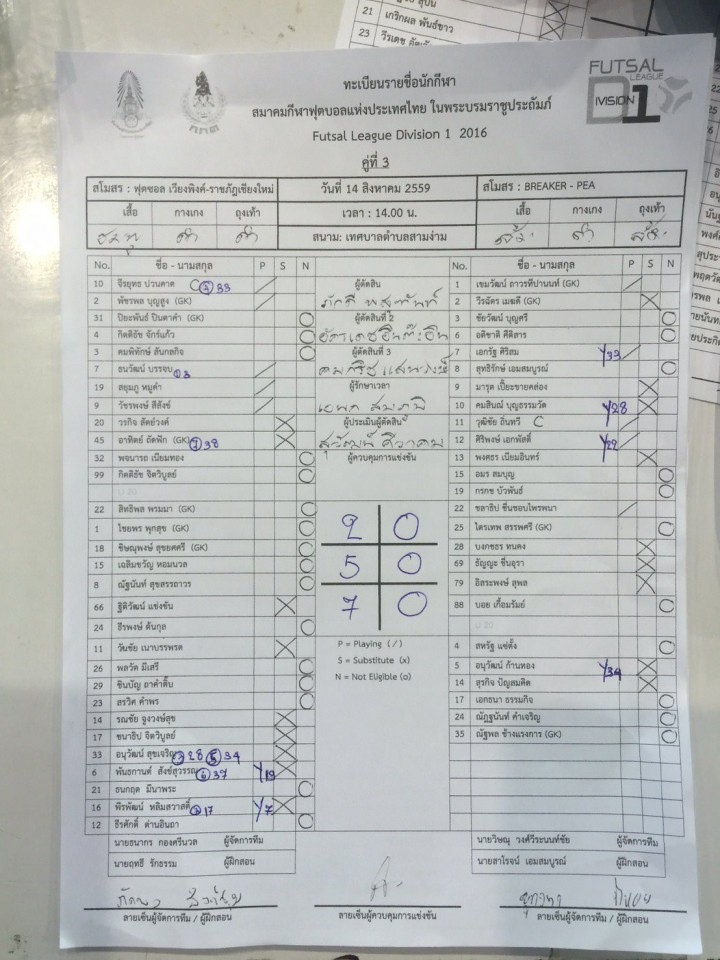 21 เกริกผล พันธ์ขาว
23 วีรเดช
FUTSAL
LEAGUE
DIVISION 1
ทะเบียนรายชื่อนักกีฬา
สมาคมกีฬาฟุตบอลแห่งประเทศไทย ในพระบรมราชูปถัมภ์
Futsal League Division 1 2016
คู่ที่ 3
สโมสร : ฟุตซอล เวียงพิงค์-ราชภัฏเชียงใหม่
วันที่ 14 สิงหาคม 2559
สโมสร : BREAKER - PEA
เสื้อ กางเกง ถุงเท้า
เวลา : 14.00 น.
เสื้อ กางเกง ถุงเท้า
ชมพู ดำ ดำ
สนาม: เทศบาลตำบลสามง่าม
ส้ม ดำ ส้ม
No. ชื่อ - นามสกุล P S N
10 จิรยุทธ ปวนคาด C 7 33 /
2 พัชรพล บุญสูง (GK) /
31 ปิยะพันธ์ ปินตาคำ (GK) O
4 กิตติธัช จักร์แก้ว O
3 คมพิทักษ์ สันกลกิจ O
7 ธนวัฒน์ บรรจบ 1 3 /
19 สยุมภู หมูคำ /
9 วัชรพงษ์ สีสังข์ /
20 วรกิจ สัตย์วงค์ X
45 อาทิตย์ ถัดฟัก (GK) 7 38 X
32 พจนารถ เนียมทอง O
99 กิตติธัช จิตวิบูลย์ O
U 20
22 สิทธิพล พรมมา (GK) O
1 ไชยพร พุกสุข (GK) O
18 ชิษณุพงษ์ สุขยศศรี (GK) O
15 เฉลิมขวัญ หอมนวล O
8 ณัฐนันท์ สุขสรรถาวร O
66 ฐิติวัฒน์ แข่งขัน X
24 ธีรพงษ์ ต้นกุล O
11 วันชัย เนาบรรพรต X
26 พลวัต มีเสรี O
29 ชินบัญ ถาคำติ๊บ O
23 สรวิศ คำพร O
14 รณชัย จูงวงษ์สุข X
17 ชนาธิป จิตวิบูลย์ X
33 อนุวัฒน์ สุขเจริญ 3 28 5 34 X
6 พันธกานต์ สังข์สุวรรณ 6 37 Y/19 X
21 ธนกฤต มีนาพระ O
16 พีรพัฒน์ หลิมสวาสดิ์ 2 17 Y/7 X
12 ธีรศักดิ์ ด่านอินถา O
นายธนากร กองศรีนวล ผู้จัดการทีม
นายฤทธี รักธรรม ผู้ฝึกสอน
ผู้ตัดสิน
ผู้ตัดสินที่ 2
ผู้ตัดสินที่ 3
ผู้รักษาเวลา
ผู้ประเมินผู้ตัดสิน
ผู้ควบคุมการแข่งขัน
2 0
5 0
7 0
P = Playing ( / )
S = Substitute (x)
N = Not Eligible (o)
No. ชื่อ - นามสกุล P S N
1 เขมวัฒน์ ถาวรทีปานนท์ (GK) /
2 วีรฉัตร เมฆดี (GK) X
3 ชัยวัฒน์ บุญศรี O
6 อติชาติ ศีติสาร O
7 เอกรัฐ ศิริสม Y/33 /
8 สุทธิรักษ์ เอมสมบูรณ์ O
9 มารุต เปี๊ยะขายคล่อง X
10 คมสินณ์ บุญธรรมวัด Y/28 X
11 วุฒิชัย อินทวี C /
12 ศิริพงษ์ เอกพัตต์ Y/22 /
13 พงศธร เนียมอินทร์ X
15 อมร สมบุญ O
19 กรกช บัวพันธ์ O
22 ชลาธิป ชื่นชอบไพรพนา /
25 ไตรเทพ สรรพศรี (GK) O
28 บงกชธร ทนคง X
69 ธัญญะ ชื่นอุรา X
79 อิสระพงษ์ สุพล X
88 บอย เกื้อมรัมย์ O
U 20
4 สหรัฐ แซ่ตั้ง O
5 อนุวัฒน์ ก้านทอง Y/34 X
14 สุรกิจ ปัญสมคิด X
17 เอกธนา ธรรมกิจ O
24 ณัฏฐนันท์ คำเจริญ O
35 ณัฐพล ช้างแรงการ (GK) O
นายวิษณุ วงศ์วีระนนท์ชัย ผู้จัดการทีม
นายสาโรจน์ เอมสมบูรณ์ ผู้ฝึกสอน
ลายเซ็นผู้จัดการทีม / ผู้ฝึกสอน
ลายเซ็นผู้ควบคุมการแข่งขัน
ลายเซ็นผู้จัดการทีม / ผู้ฝึกสอน